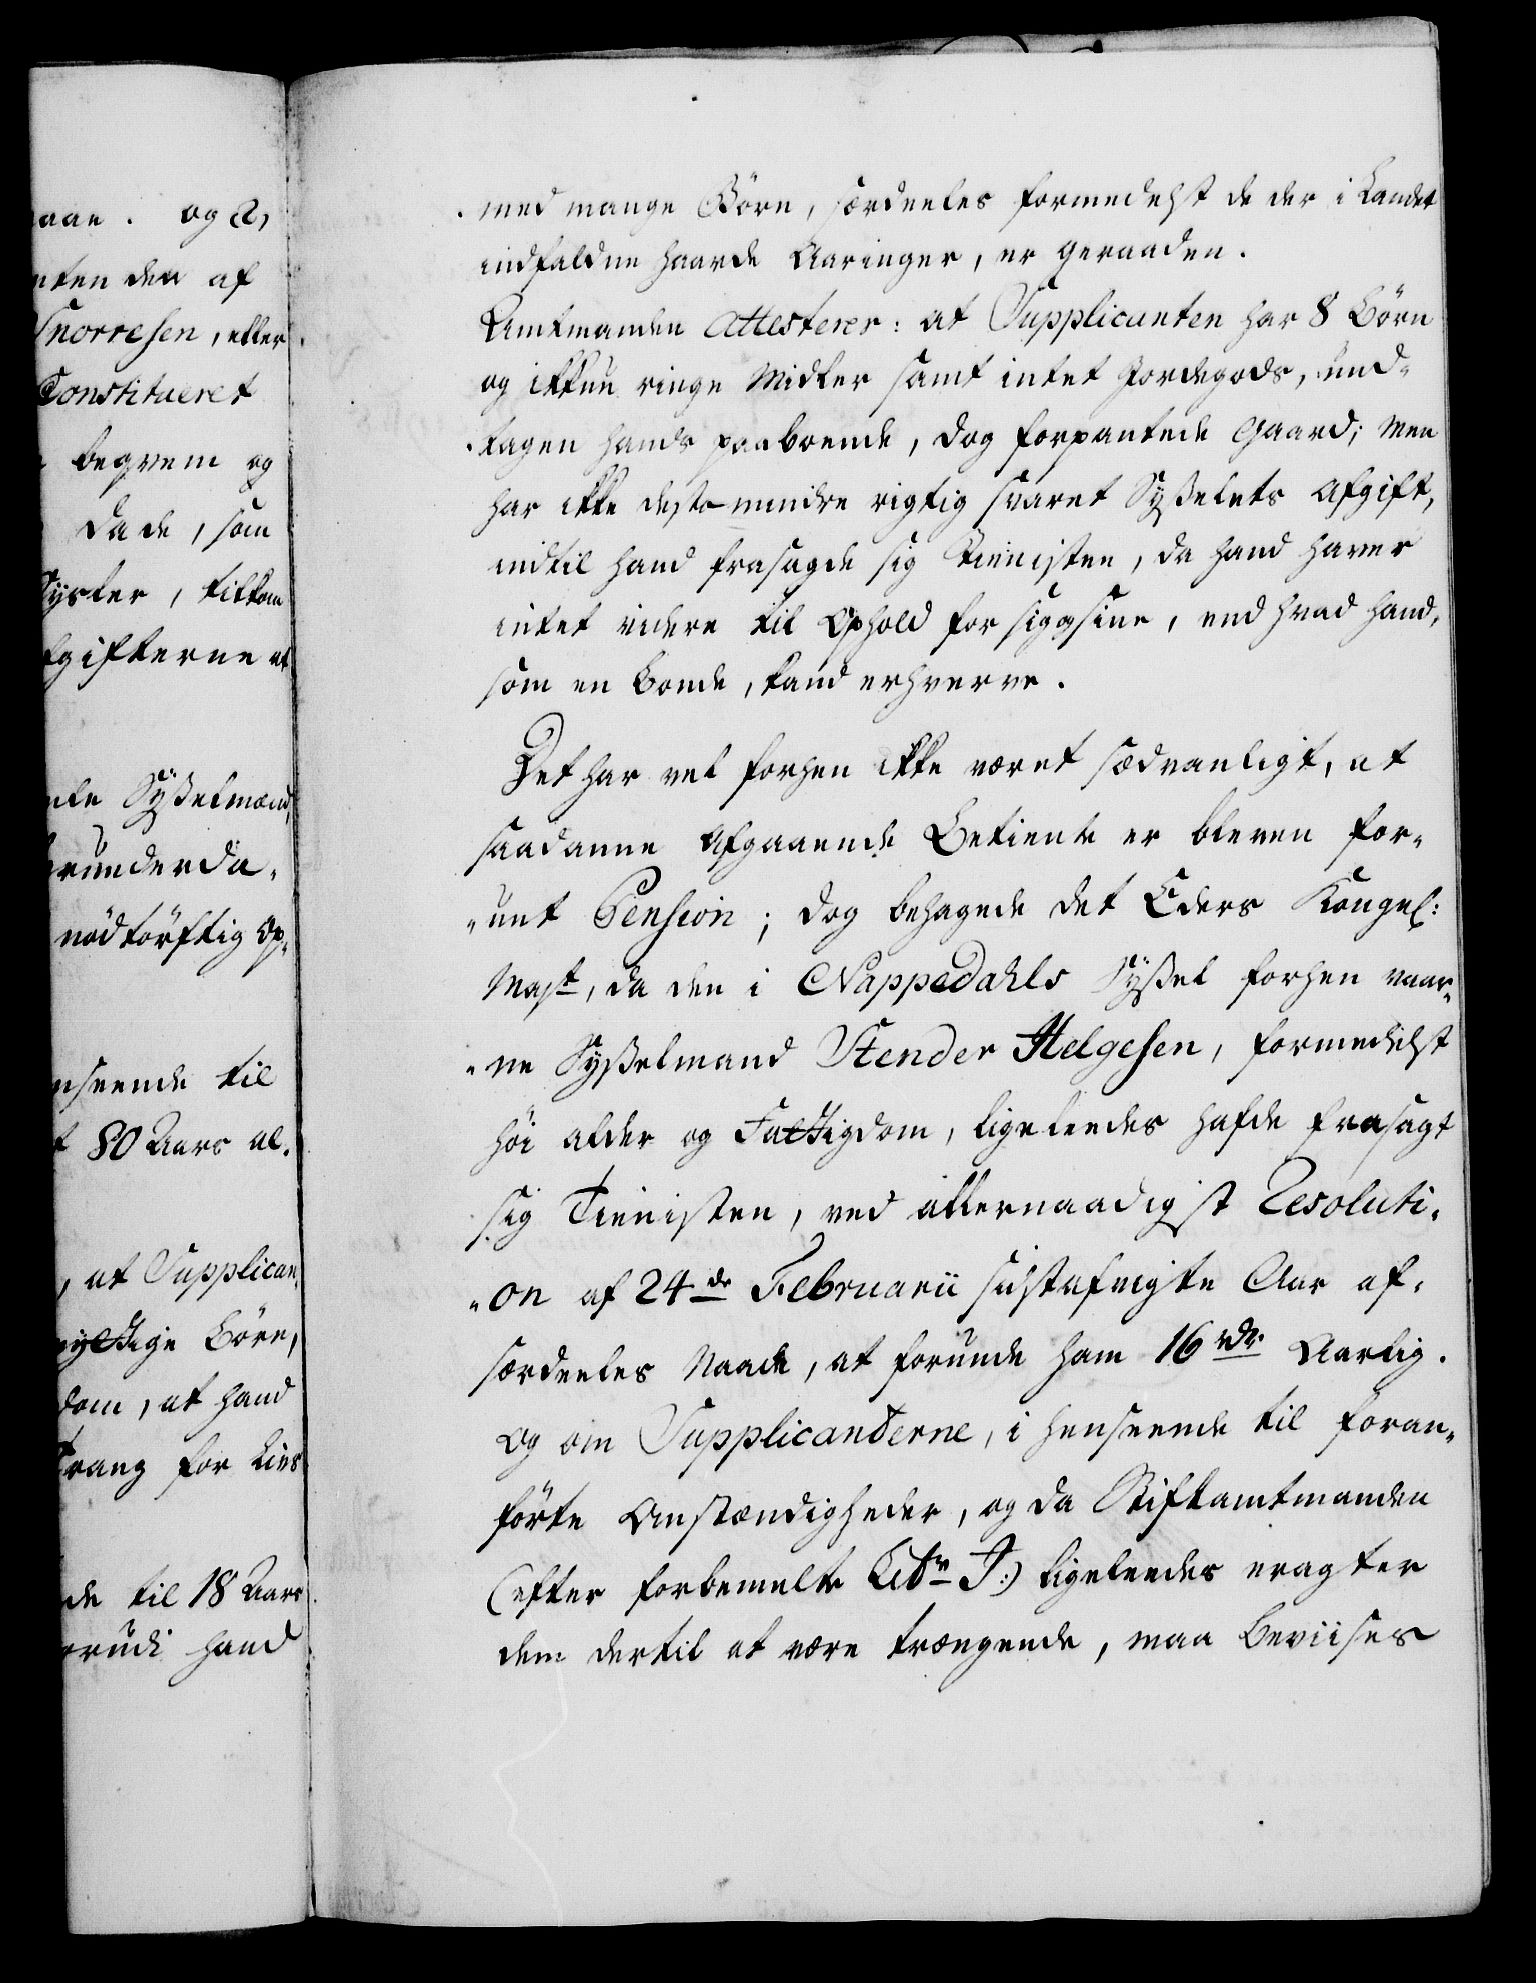 aan. og 2,
nten den af
Snorresen, eller
Constitueret
beqvem og
da de, som
Syster, tilkom
fgifterne at
nte Sysselmænd,
grunderda-
nödtörftig Op-
nseende til
t 80 Aars al-
, at Supplican-
yttige Börn,
dom, at hand
Trang for Livs
de til 18 Aars
hand
med mange Börn, særdeeles formedelst de der i Landet
indfaldne haarde Aaringer, er geraaden.
Amtmanden Attesterer: at Supplicanten har 8 Börn
og ikkun ringe Midler samt intet Jordegods, und-
tagen hands paaboende, dog forpantede Gaard; Men
har ikke desto mindre rigtig svaret Sysselets Afgift,
indtil hand frasagde sig Tienisten, da hand haver
intet videre til Ophold for sig og sine, end hvad hand,
som en Bonde, kand erhverve.
Det har vel forhen ikke været sædvanligt, at
saadanne Afgaaende Betiente er bleven for-
-unt Pension; dog behagede det Eders Kongel:
Majt, da den i Nappedahls Syssel forhen vaar-
-ne Sysselmand Stender Helgesen, formedelst
höi alder og Fattigdom, ligeleedes hafde frasagt
sig Tienisten, ved allernaadigst Resoluti-
-on af 24de Februarii sidstafvigte Aar af
særdeeles Naade, at forunde ham 16 rdr Aarlig.
Og om Supplicanterne, i henseende til foran-
förte Omstændigheder, og da Stiftamtmanden
(efter forbemelte Litr J:) ligeleedes eragter
dem dertil at være trængende, maa beviises